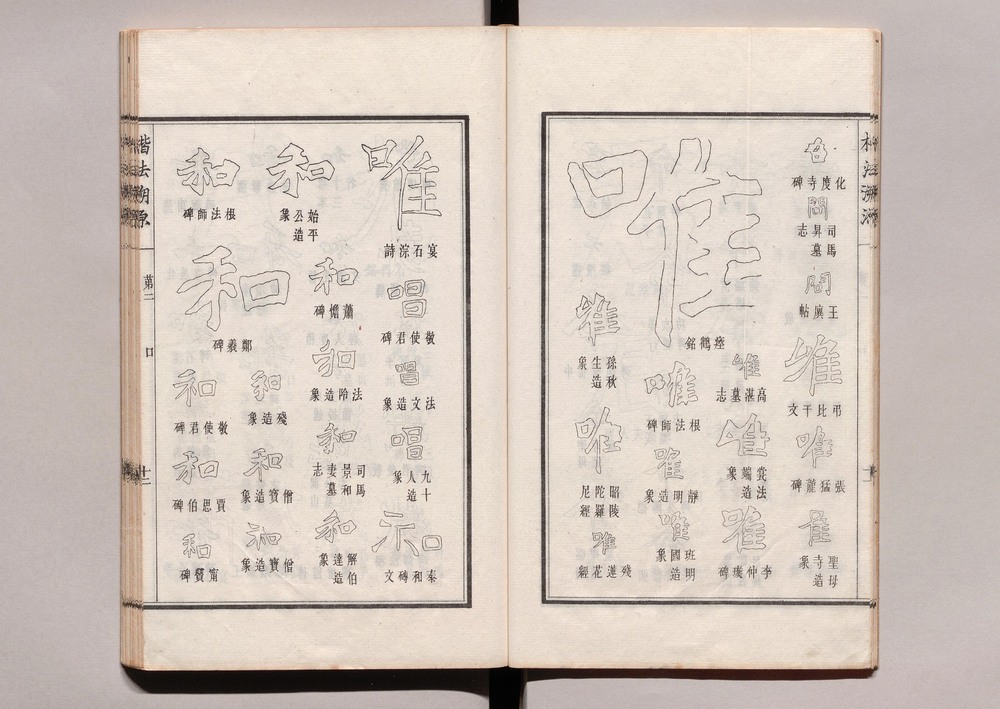 化度寺碑
問
司馬昇墓志
問
王廙帖
唯
弔比干文
唯
張猛龍碑
唯
聖母寺造象
唯
瘞鶴銘
唯
高湛墓志
唯
裳法端造象
唯
李仲璇碑
唯
根法師碑
唯
靜明造象
唯
班明國造象
唯
孫秋生造象
唯
昭陵陀羅尼經
唯
唯
宴石淙詩
唱
敬使君碑
唱
法文造象
唱
九十人造象
和
秦和磚文
和
始平公造象
和
蕭憺碑
和
法阾造象
和
司馬景和妻墓志
和
解伯達造象
和
根法師碑
和
鄭羲碑
和
殘造象
和
僧寶造象
和
僧寶造象
和
敬使君碑
和
賈思伯碑
和
甯贙碑
楷法溯源
第二
口
十二